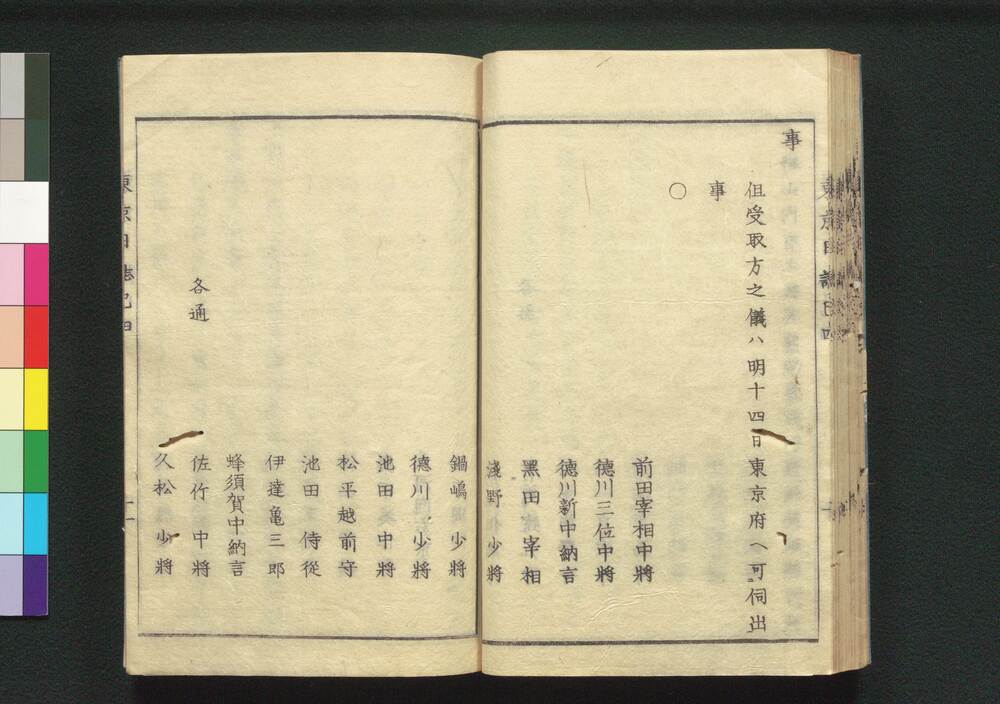 事
但受取方之儀ハ明十四日東京府ヘ可伺出
事
○
前田宰相中將
德川三位中將
德川新中納言
黑田宰相
淺野少將
鍋嶋少將
德川少將
池田中將
松平越前守
池田侍從
伊達亀三郎
蜂須賀中納言
各通
佐竹中將
久松少將
東京日誌